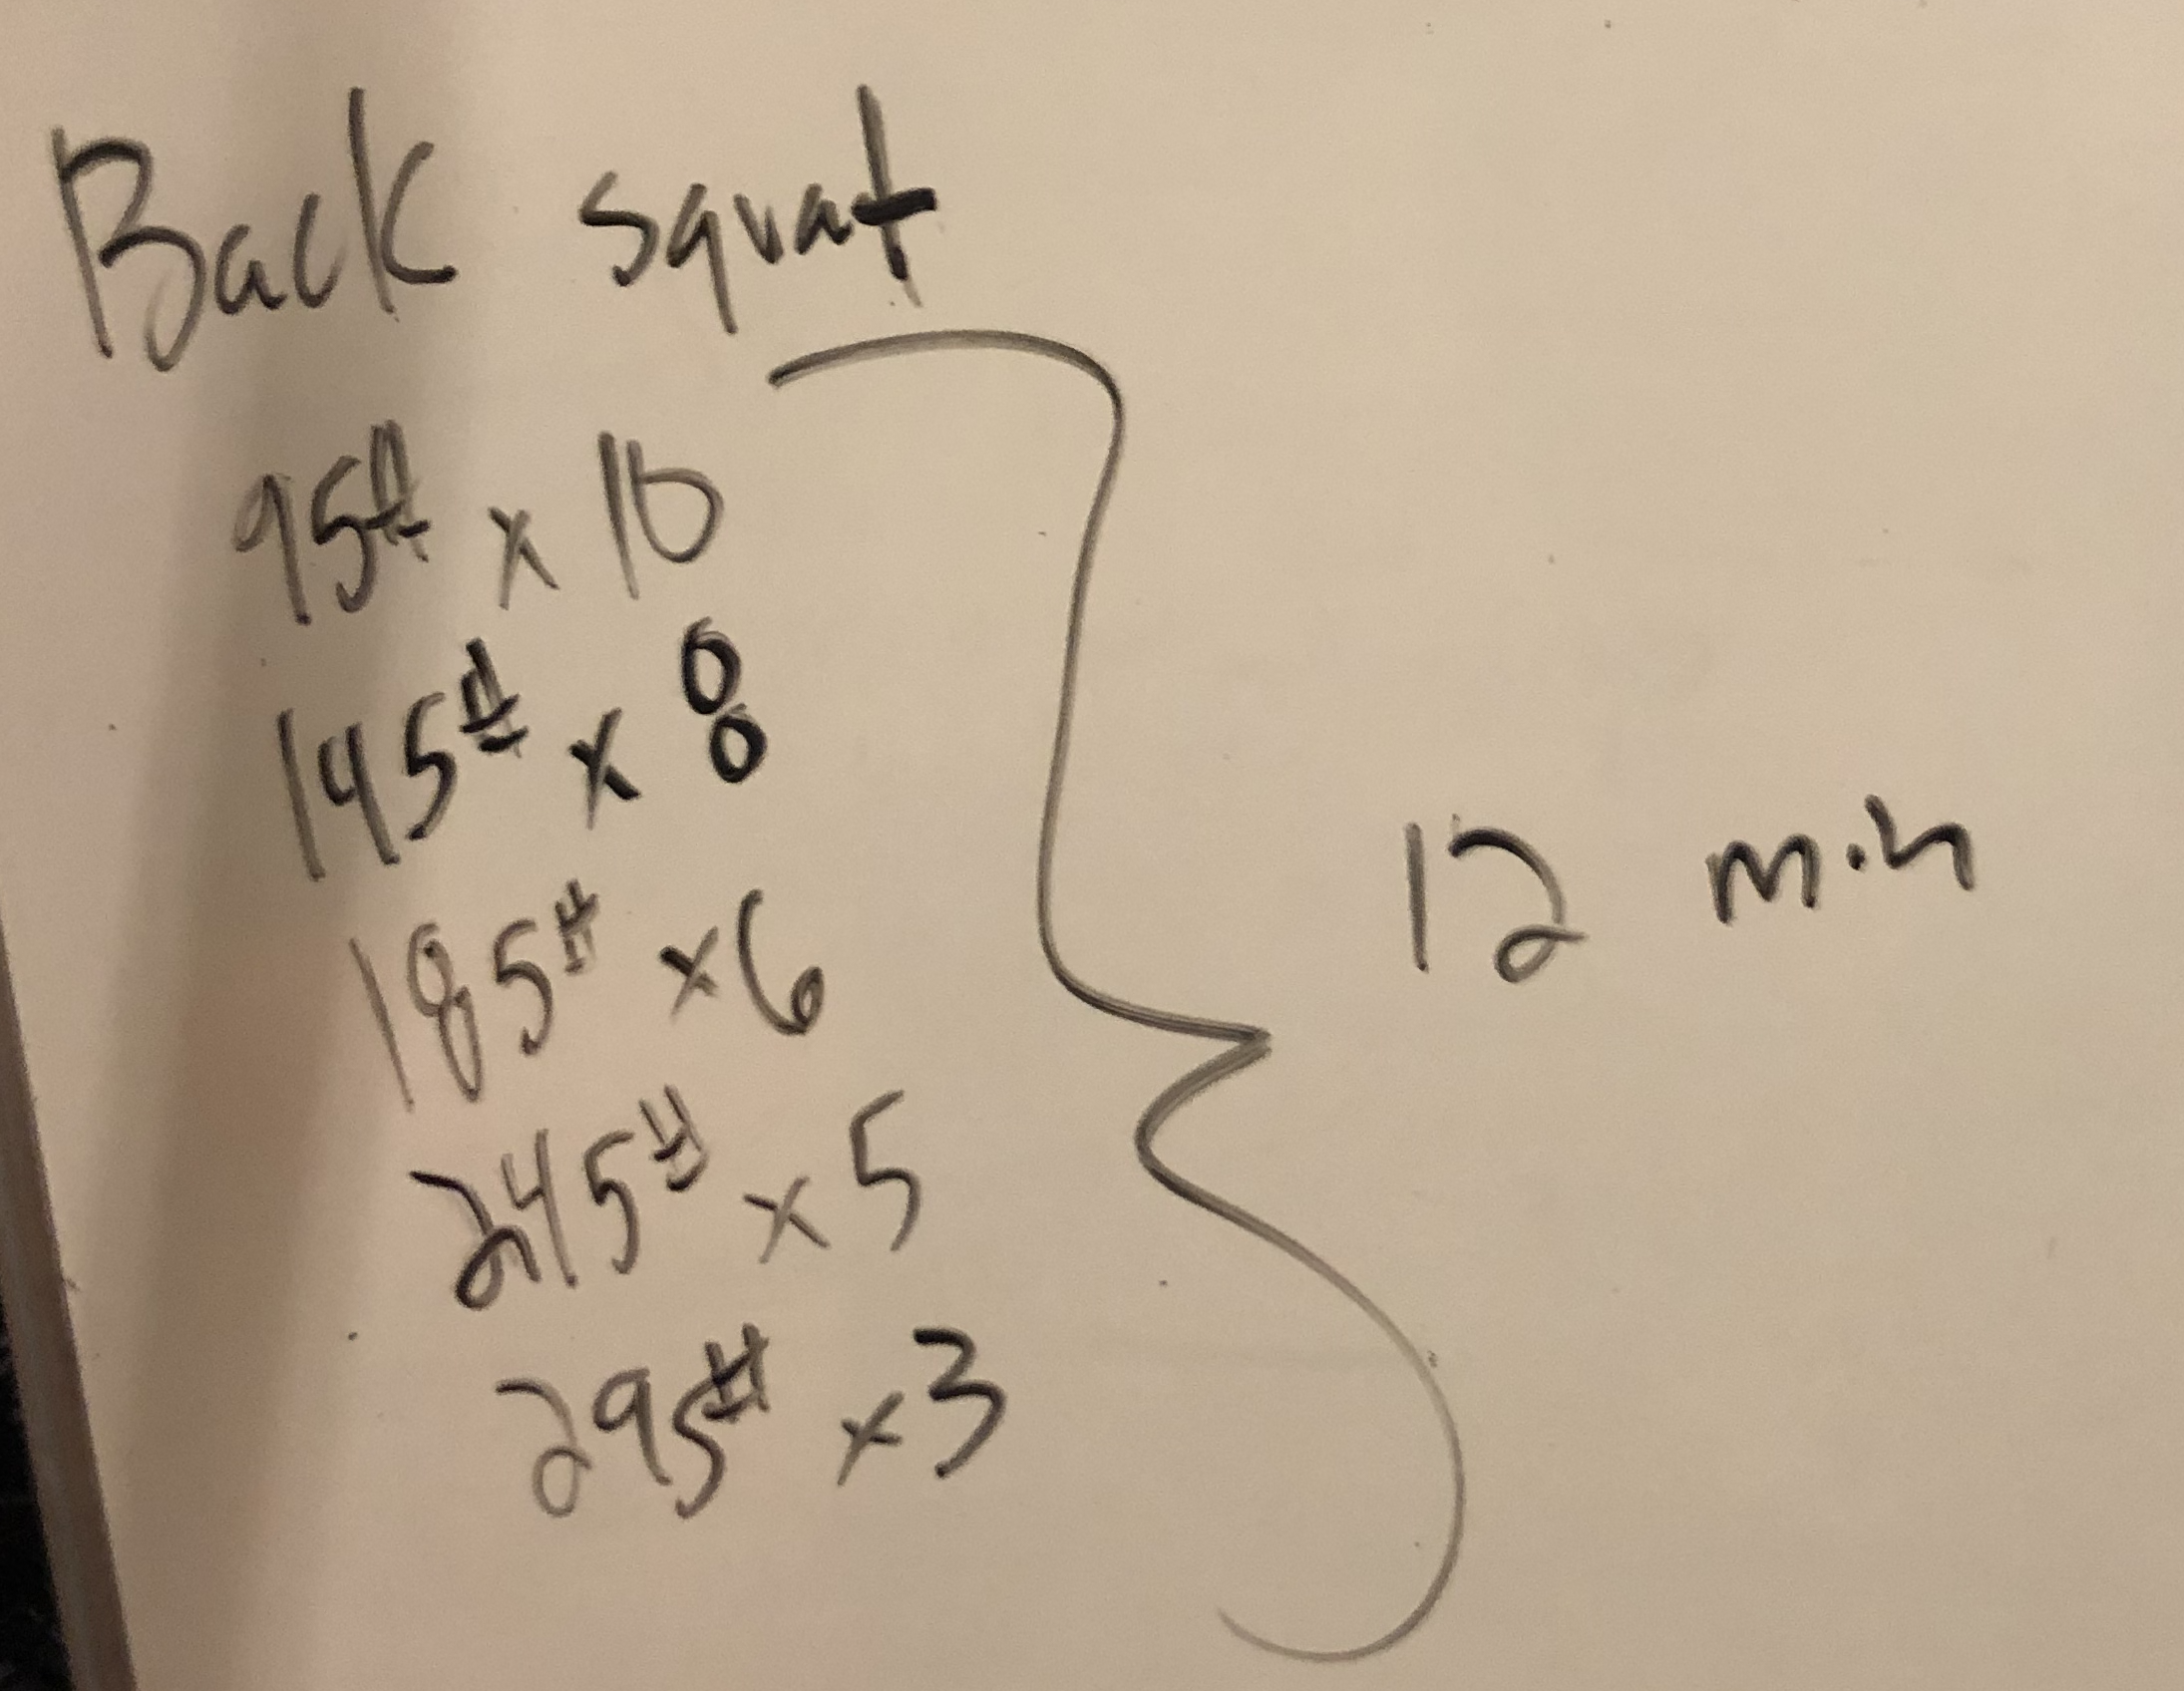 Back squat
95# x 10
145# x 8
185# x 6
245# x 5
295# x 3
12 min